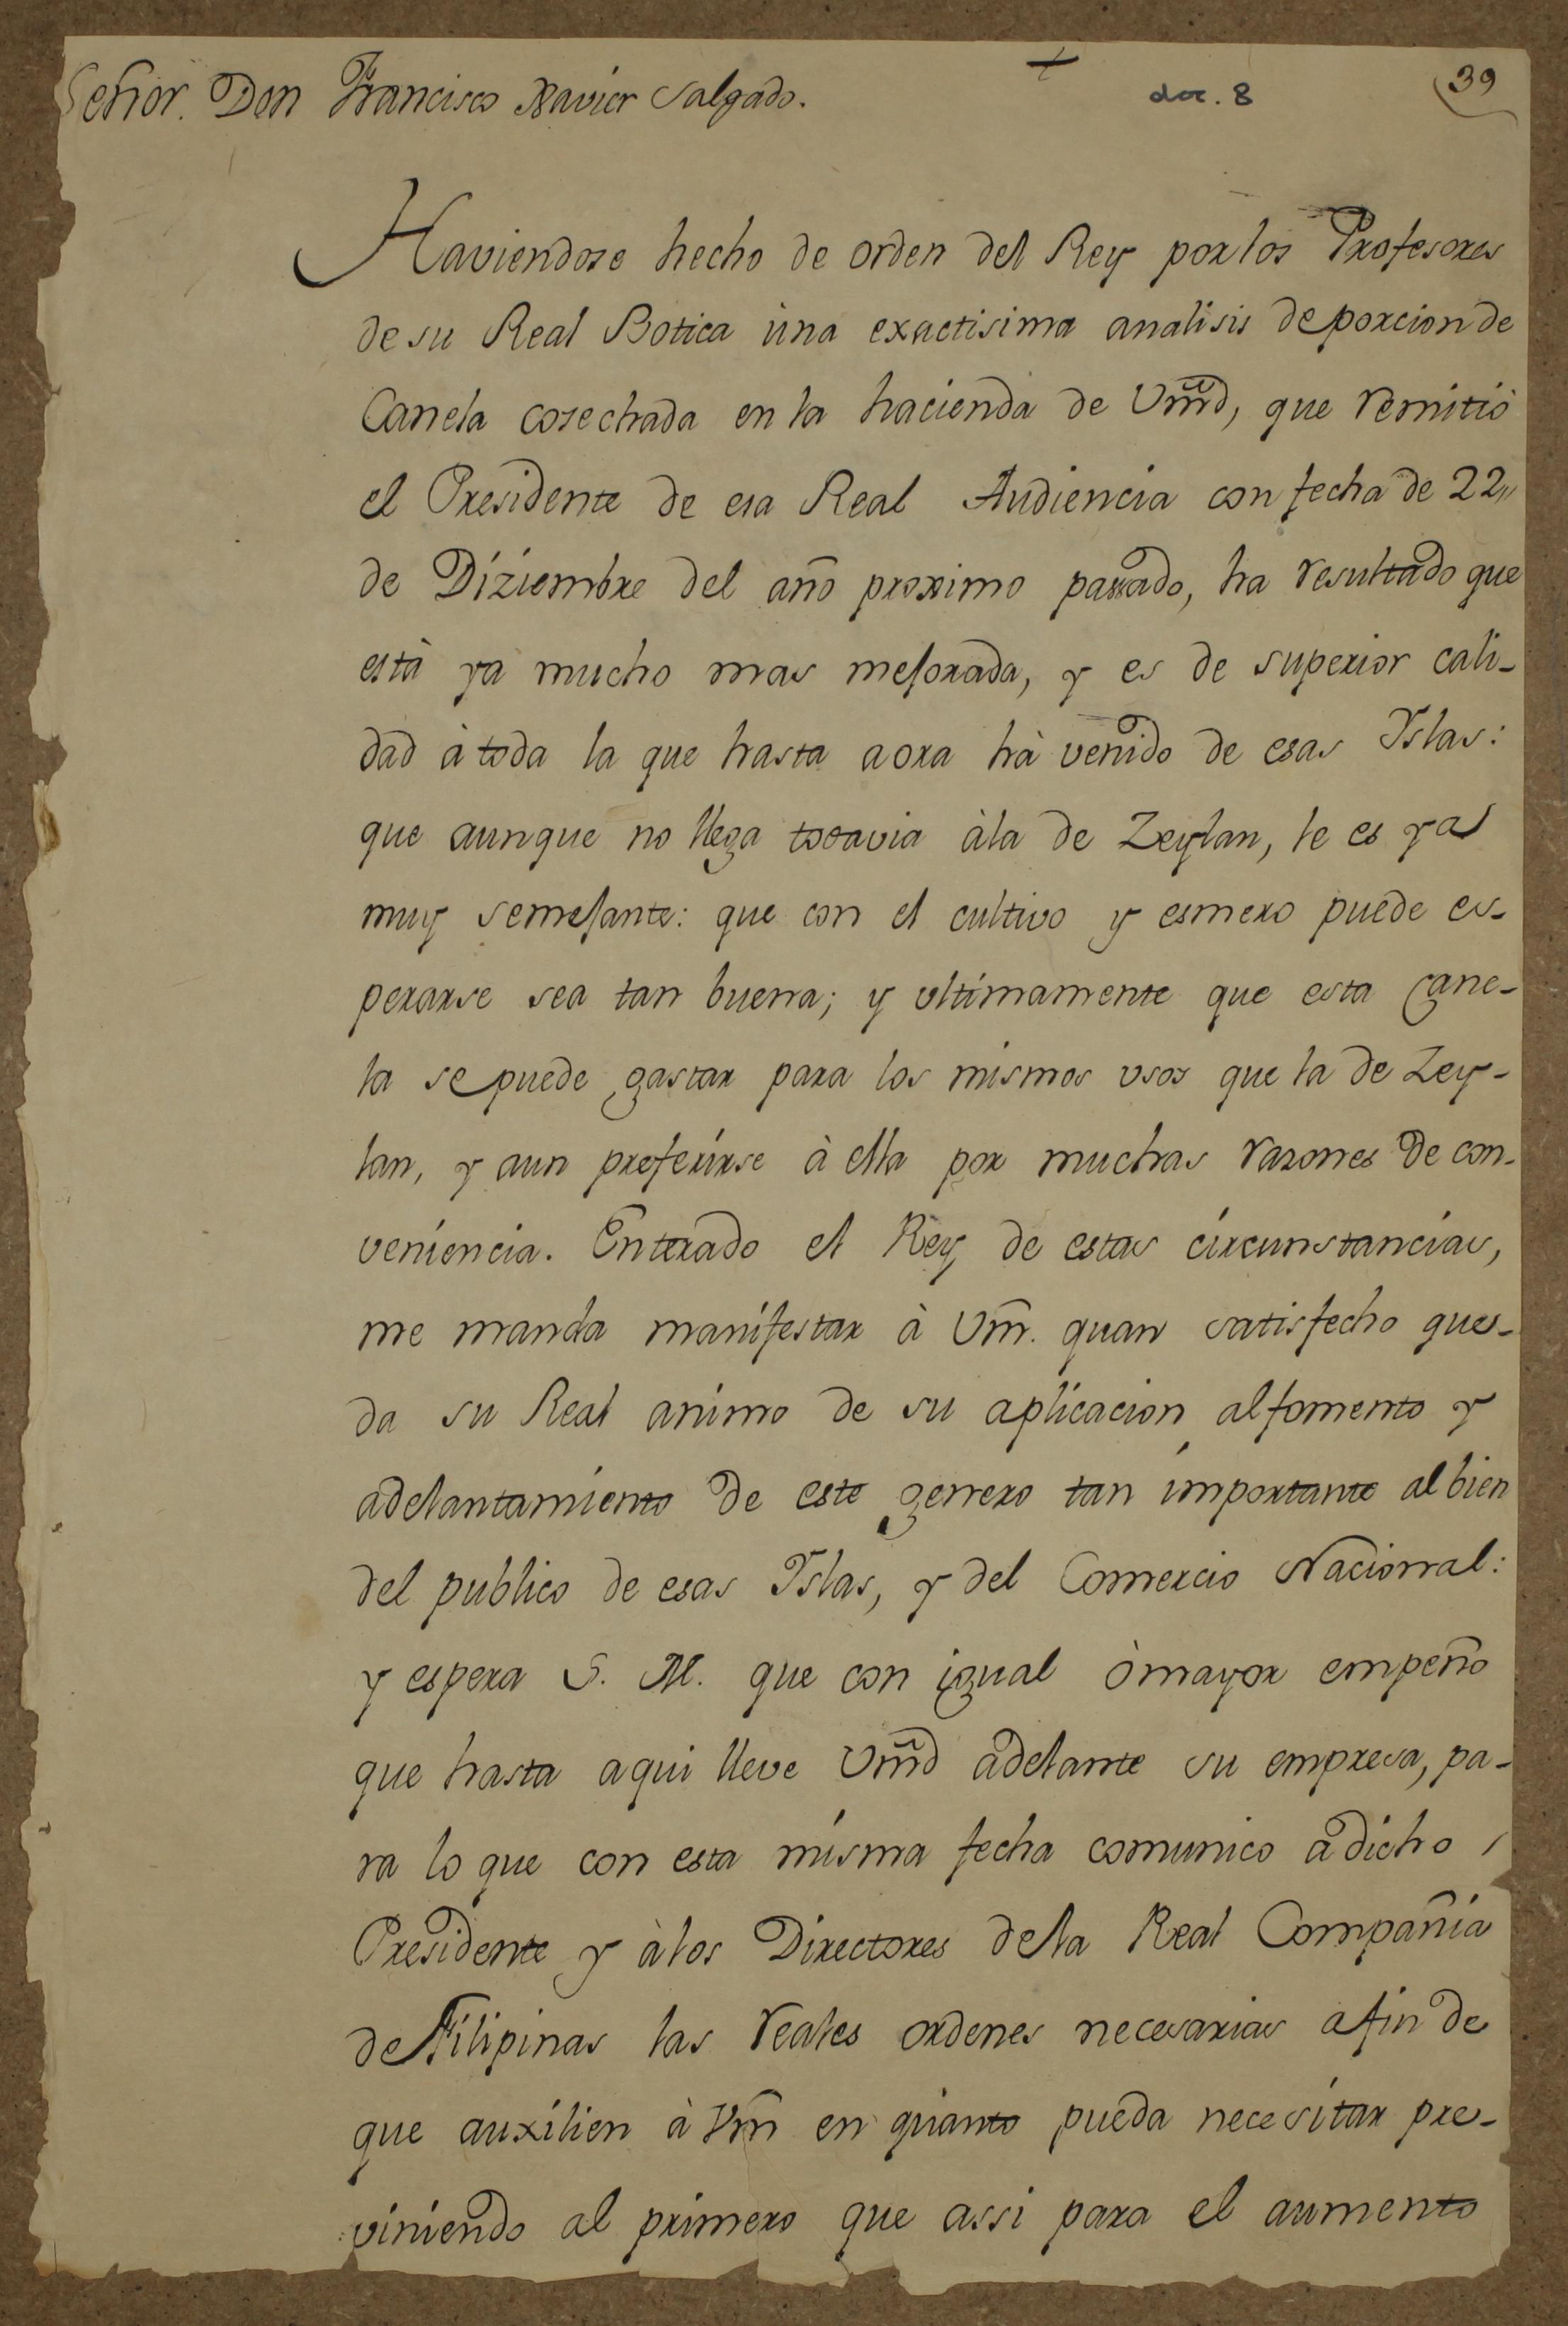 Señor. Don Francisco Xavier Salgado.
doc. 8
39
Haviendose hecho de orden del Rey por los Profesores
de su Real Botica ùna exactisima analisis de porcion de
Canela cosechada en la hacienda de Vm̃d, que remitiò
el Presidente de esa Real Audiencia con fecha de 22,,
de Diziembre del año proximo passado, ha resultado que
està ya mucho mas mejorada, y es de superior cali-
dad à toda la que hasta aora hà venido de esas Yslas:
que aunque no llega todavia à la de Zeylan, le es ya
muy semejante: que con el cultivo y esmero puede es-
perarse sea tan buena; y ultimamente que esta Cane-
la se puede gastar para los mismos usos que la de Zey-
lan, y aun preferirse à ella por muchas razones de con-
veniencia. Enterado el Rey de estas circunstancias,
me manda manifestar à Vm̃. quan satisfecho que-
da su Real animo de su aplicacion al fomento y
adelantamiento de este genero tan importante al bien
del publico de esas Yslas, y del Comercio Nacional:
y espera S. M. que con igual ò mayor empeño
que hasta aqui lleve Vm̃d adelante su empresa, pa-
ra lo que con esta misma fecha comunico à dicho
Presidente y à los Directores de la Real Compañia
de Filipinas las reales ordenes necesarias a fin de
que auxilien à Vm̃ en quanto pueda necesitar pre-
viniendo al primero que assi para el aumento